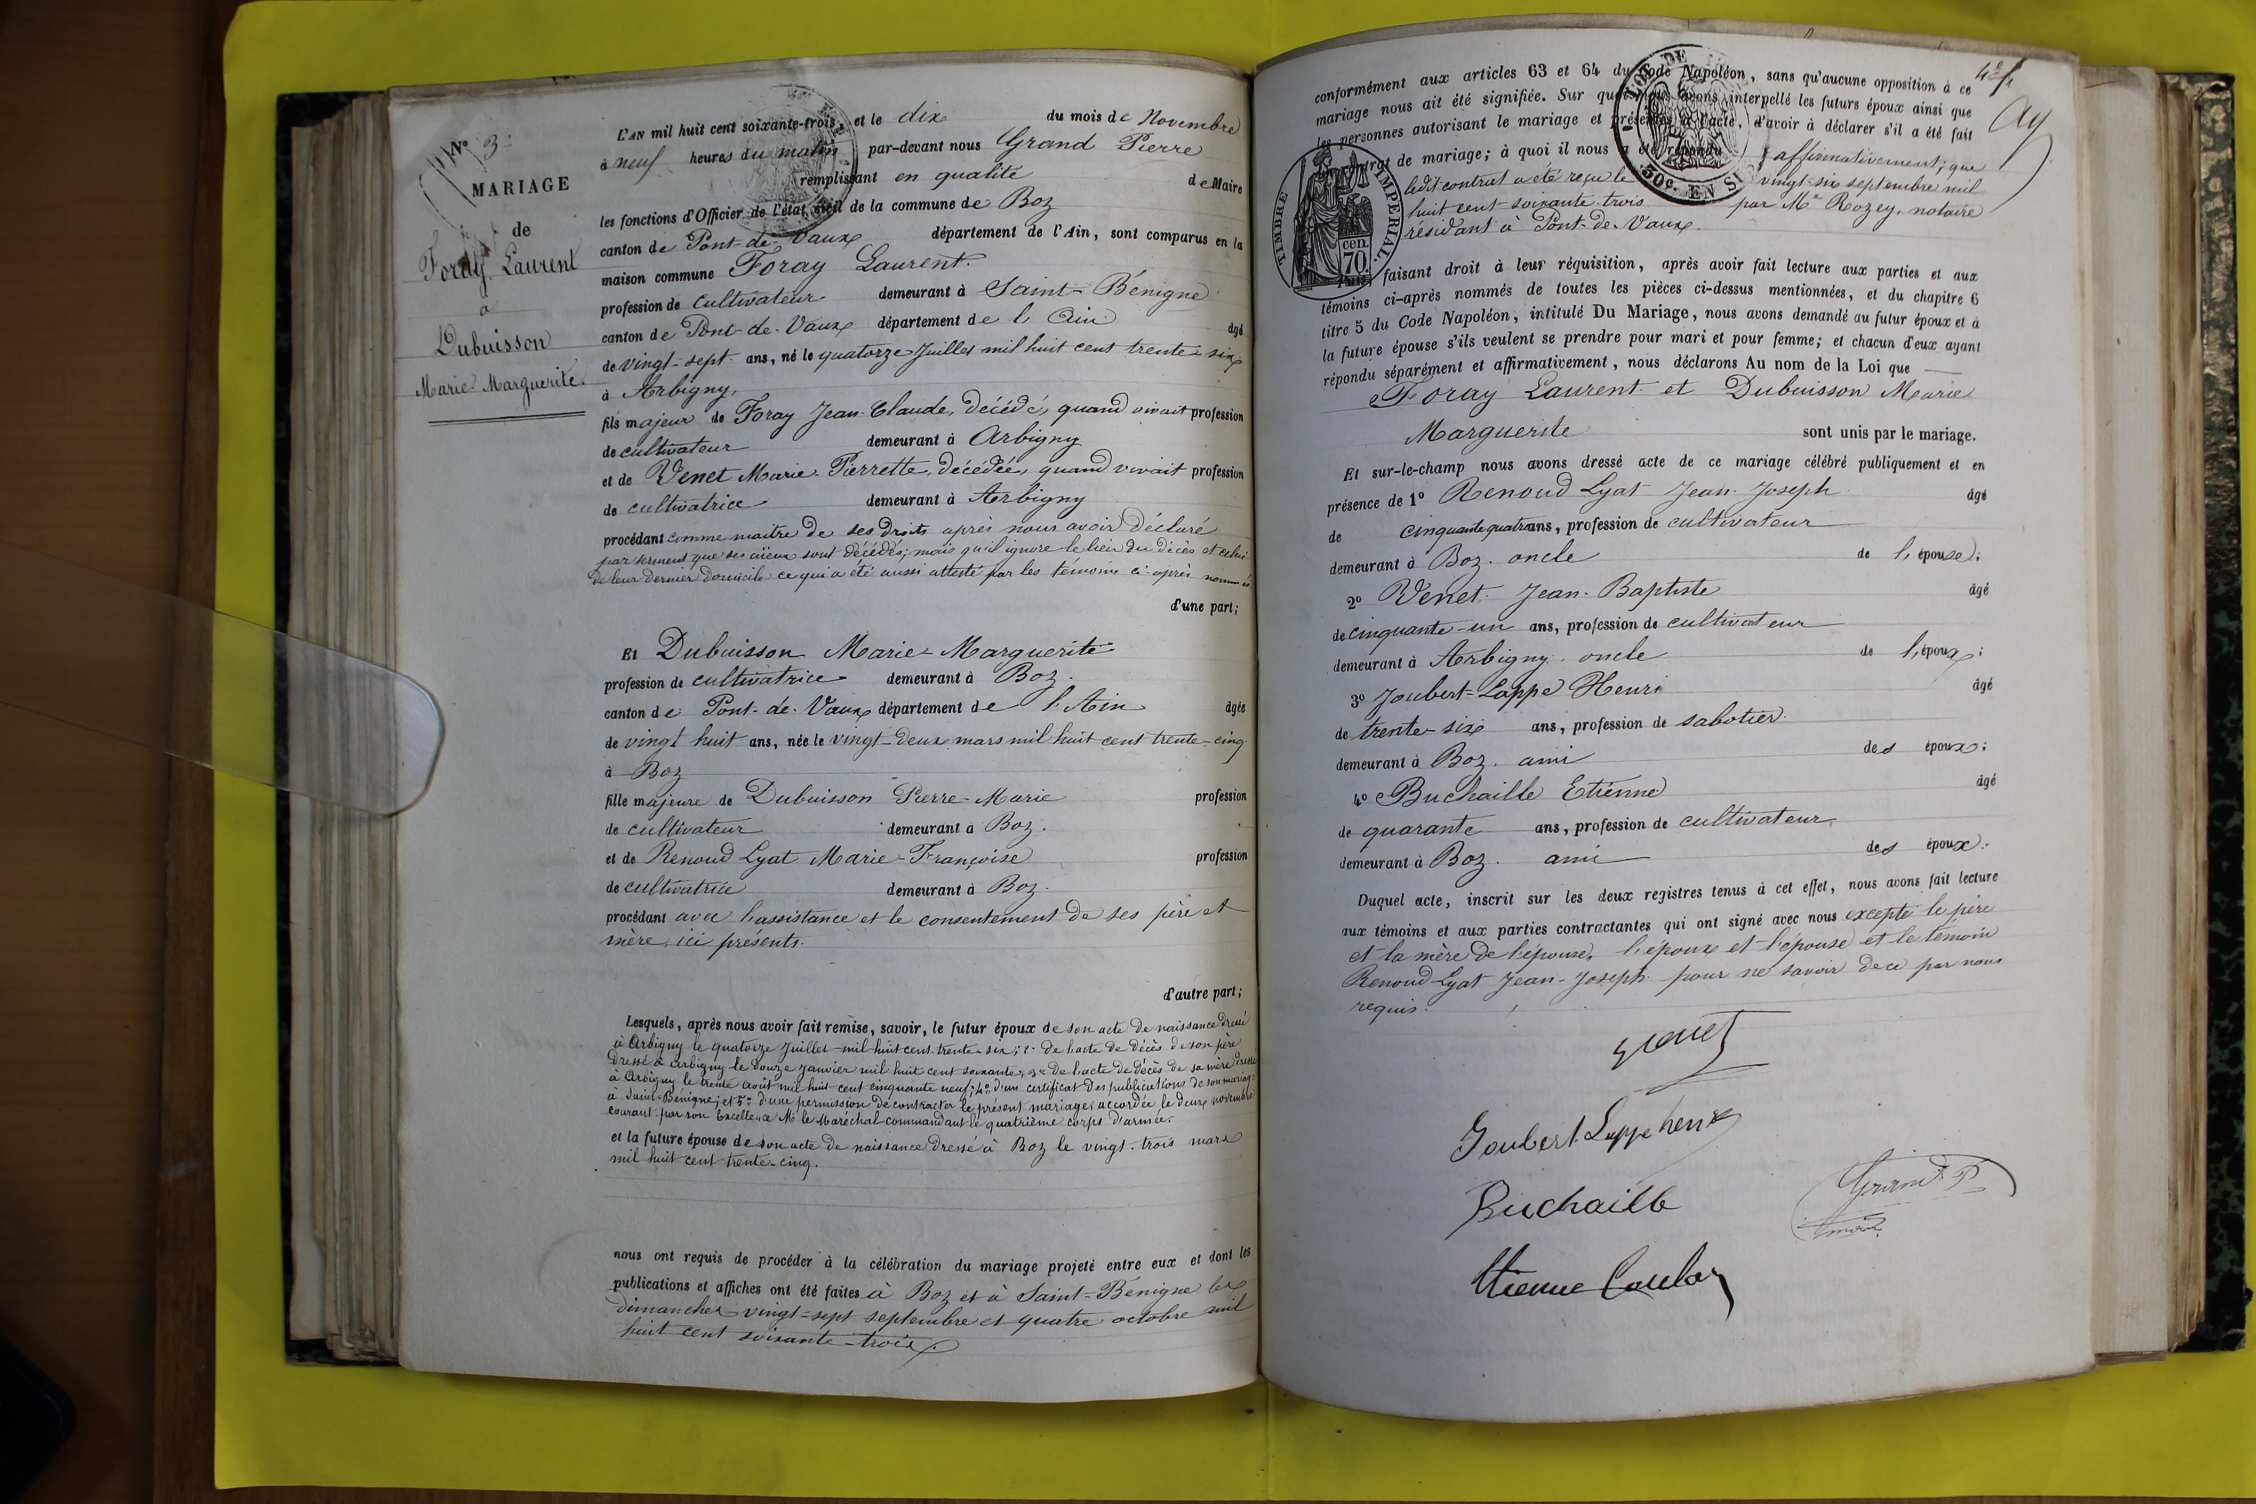 N° 3
MARIAGE
de
Foray Laurent
à
Dubuisson
Marie-Marguerite.
L'AN mil huit cent soixante-trois, et le dix du mois de Novembre
à neuf heures du matin par-devant nous Grand Pierre
remplissant en qualité de Maire
les fonctions d'Officier de l'état civil de la commune de Boz
canton de Pont-de-Vaux département de l'Ain, sont comparus en la
maison commune Foray Laurent.
profession de cultivateur demeurant à Saint-Bénigne
canton de Pont-de-Vaux département de l'Ain âgé
de vingt-sept ans, né le quatorze Juillet mil huit cent trente-six
à Arbigny,
fils majeur de Foray Jean-Claude, décédé, quand vivait profession
de cultivateur demeurant à Arbigny
et de Venet Marie-Pierrette, décédée, quand vivait profession
de cultivatrice demeurant à Arbigny
procédant comme maitre de ses droits après nous avoir déclaré
par serment que ses aïeux sont décédés; mais qu'il ignore le lieu du décès et celui
de leur dernier domicile ce qui a été aussi attesté par les témoins ci-après nommés
d'une part;
Et Dubuisson Marie-Marguerite
profession de cultivatrice demeurant à Boz.
canton de Pont-de-Vaux département de l'Ain âgée
de vingt huit ans, née le vingt-deux mars mil huit cent trente-cinq
à Boz
fille majeure de Dubuisson Pierre-Marie profession
de cultivateur demeurant à Boz.
et de Renoud Lyat Marie-Françoise profession
de cultivatrice demeurant à Boz.
procédant avec l'assistance et le consentement de ses père et
mère, ici présents.
d'autre part;
Lesquels, après nous avoir fait remise, savoir, le futur époux de son acte de naissance dressé
à Arbigny le quatorze Juillet mil huit cent trente-six; 2° de l'acte de décès de son père
dressé à Arbigny le douze janvier mil huit cent soixante; 3° de l'acte de décès de sa mère dressé
à Arbigny le trente août mil huit cent cinquante neuf; 4° d'un certificat des publications de son mariage
à Saint-Bénigne; et 5° d'une permission de contracter le présent mariage, accordée le deux novembre
courant par son Excellence Mr le Maréchal commandant le quatrième corps d'armée.
et la future épouse de son acte de naissance dressé à Boz le vingt-trois mars
mil huit cent trente-cinq.
nous ont requis de procéder à la célébration du mariage projeté entre eux et dont les
publications et affiches ont été faites à Boz et à Saint-Bénigne les
dimanches vingt-sept septembre et quatre octobre mil
huit cent soixante-trois.
conformément aux articles 63 et 64 du Code Napoléon, sans qu'aucune opposition à ce
mariage nous ait été signifiée. Sur quoi nous avons interpellé les futurs époux ainsi que
les personnes autorisant le mariage et présentes à l'acte, d'avoir à déclarer s'il a été fait
contrat de mariage; à quoi il nous a été répondu affirmativement; que
ledit contrat a été reçu le vingt-six septembre mil
huit cent soixante-trois par Me Rozey, notaire
résidant à Pont-de-Vaux.
TIMBRE IMPERIAL
cen.
70.
50c. EN SUS
faisant droit à leur réquisition, après avoir fait lecture aux parties et aux
témoins ci-après nommés de toutes les pièces ci-dessus mentionnées, et du chapitre 6
titre 5 du Code Napoléon, intitulé Du Mariage, nous avons demandé au futur époux et à
la future épouse s'ils veulent se prendre pour mari et pour femme; et chacun d'eux ayant
répondu séparément et affirmativement, nous déclarons Au nom de la Loi que
Foray Laurent et Dubuisson Marie
Marguerite sont unis par le mariage.
Et sur-le-champ nous avons dressé acte de ce mariage célébré publiquement et en
présence de 1° Renoud Lyat Jean-Joseph âgé
de cinquante quatre ans, profession de cultivateur
demeurant à Boz. oncle de l'épouse;
2° Venet Jean-Baptiste âgé
de cinquante-un ans, profession de cultivateur
demeurant à Arbigny. oncle de l'époux;
3° Joubert-Lappe Henri âgé
de trente-six ans, profession de sabotier.
demeurant à Boz. ami des époux;
4° Buchaille Etienne âgé
de quarante ans, profession de cultivateur
demeurant à Boz. ami des époux.
Duquel acte, inscrit sur les deux registres tenus à cet effet, nous avons fait lecture
aux témoins et aux parties contractantes qui ont signé avec nous excepté le père
et la mère de l'épouse, l'époux et l'épouse et le témoin
Renoud-Lyat Jean-Joseph pour ne savoir de ce par nous
requis.
Venet
Joubert Lappe henri
Buchaille
Grand P
maire
Etienne Coulon